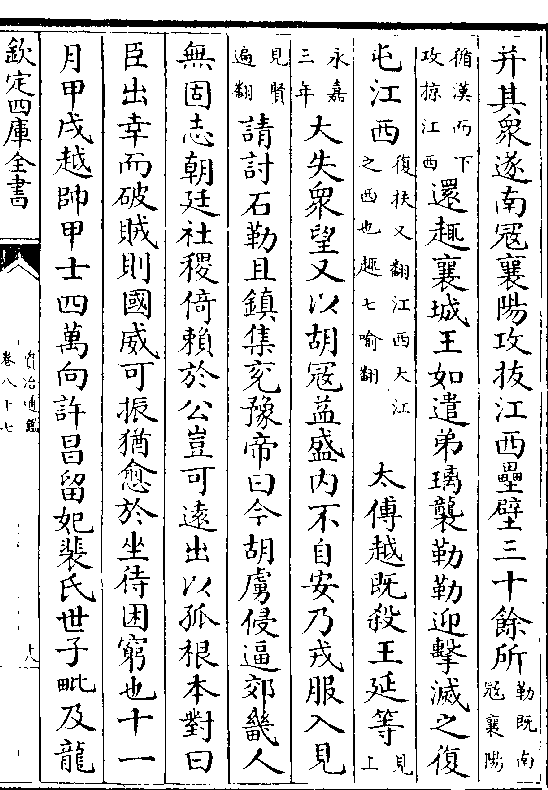 并其衆遂南寇襄陽攻拔江西壘壁三十餘所勒既南寇襄陽
循漢而下攻掠江西還趣襄城王如遣弟璃襲勒勒迎擊滅之復
屯江西復扶又翻江西大江之西也趣七喻翻 太傅越既殺王延等見上
永嘉三年大失衆望又以胡寇益盛内不自安乃戎服入見
見賢遍翻請討石勒且鎮集兖豫帝曰今胡虜侵逼郊畿人
無固志朝廷社稷倚賴於公豈可遠出以孤根本對曰
臣出幸而破賊則國威可振猶愈於坐待困窮也十一
月甲戌越帥甲士四萬向許昌留妃裴氏世子毗及龍
欽定四庫全書
資治通鑑
卷八十七
十八